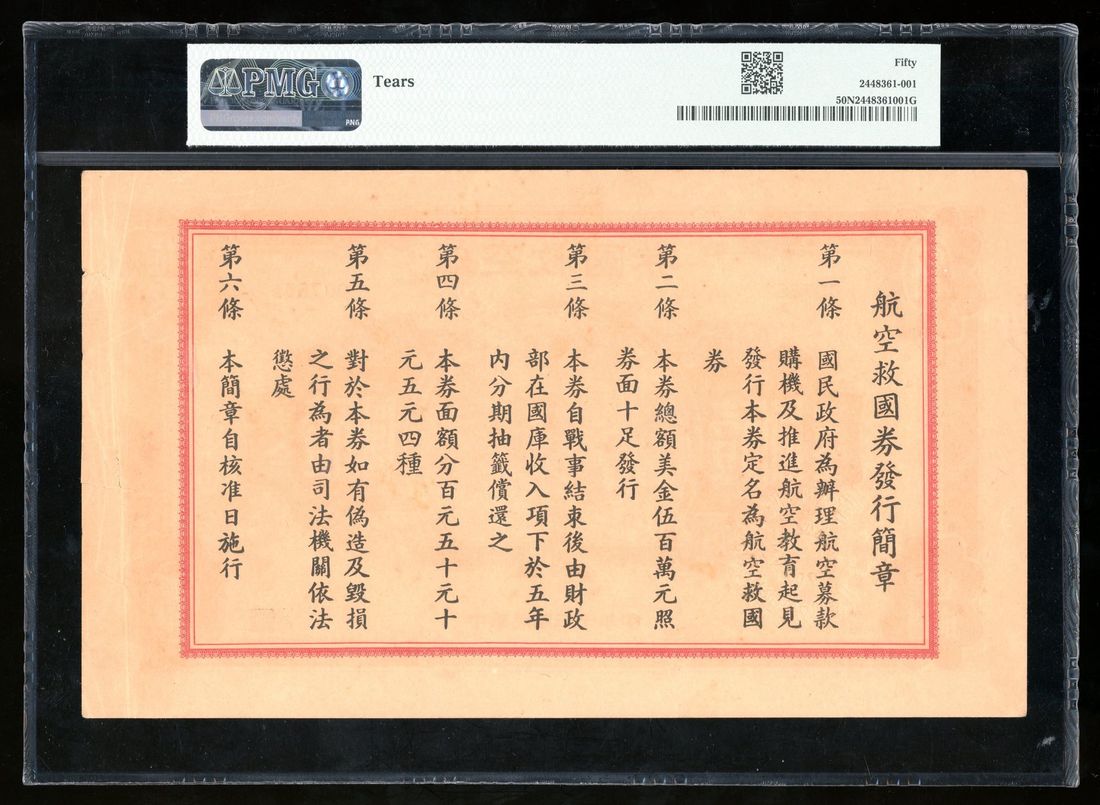 PMG
Tears
Fifty
2448361-001
50N2448361001G
PNG
航空救國券發行簡章
第一條 國民政府為辦理航空募款
購機及推進航空教育起見
發行本券定名為航空救國
券
第二條 本券總額美金伍百萬元照
券面十足發行
第三條 本券自戰事結束後由財政
部在國庫收入項下於五年
內分期抽籤償還之
第四條 本券面額分百元五十元十
元五元四種
第五條 對於本券如有偽造及毀損
之行為者由司法機關依法
懲處
第六條 本簡章自核准日施行